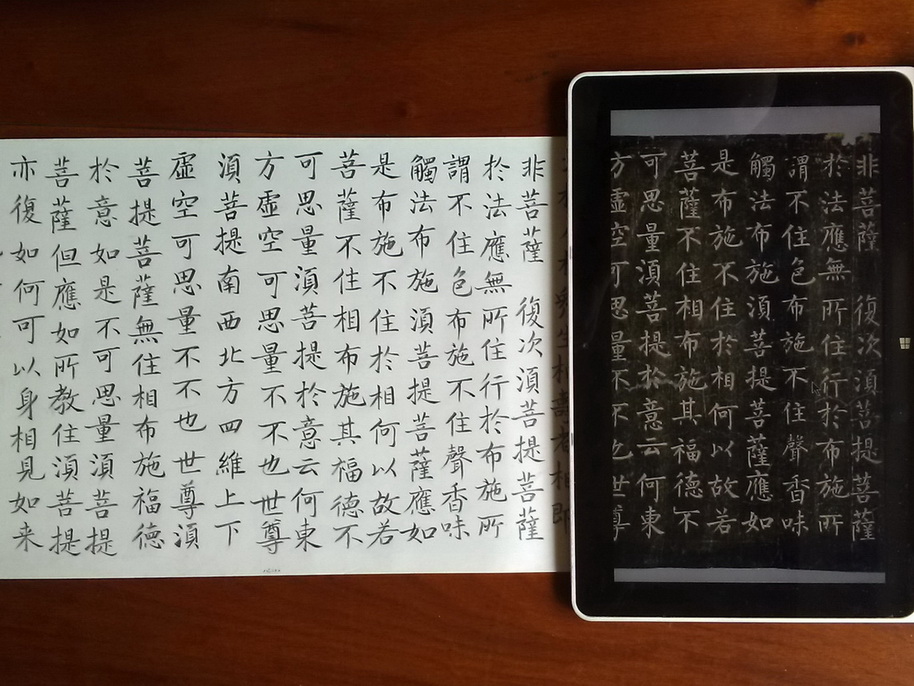 非菩薩 復次須菩提菩薩
於法應無所住行於布施所
謂不住色布施不住聲香味
觸法布施須菩提菩薩應如
是布施不住於相何以故若
菩薩不住相布施其福德不
可思量須菩提於意云何東
方虛空可思量不不也世尊
非菩薩 復次須菩提菩薩
於法應無所住行於布施所
謂不住色布施不住聲香味
觸法布施須菩提菩薩應如
是布施不住於相何以故若
菩薩不住相布施其福德不
可思量須菩提於意云何東
方虛空可思量不不也世尊
須菩提南西北方四維上下
虛空可思量不不也世尊須
菩提菩薩無住相布施福德
於意如是不可思量須菩提
菩薩但應如所教住須菩提
亦復如何可以身相見如来